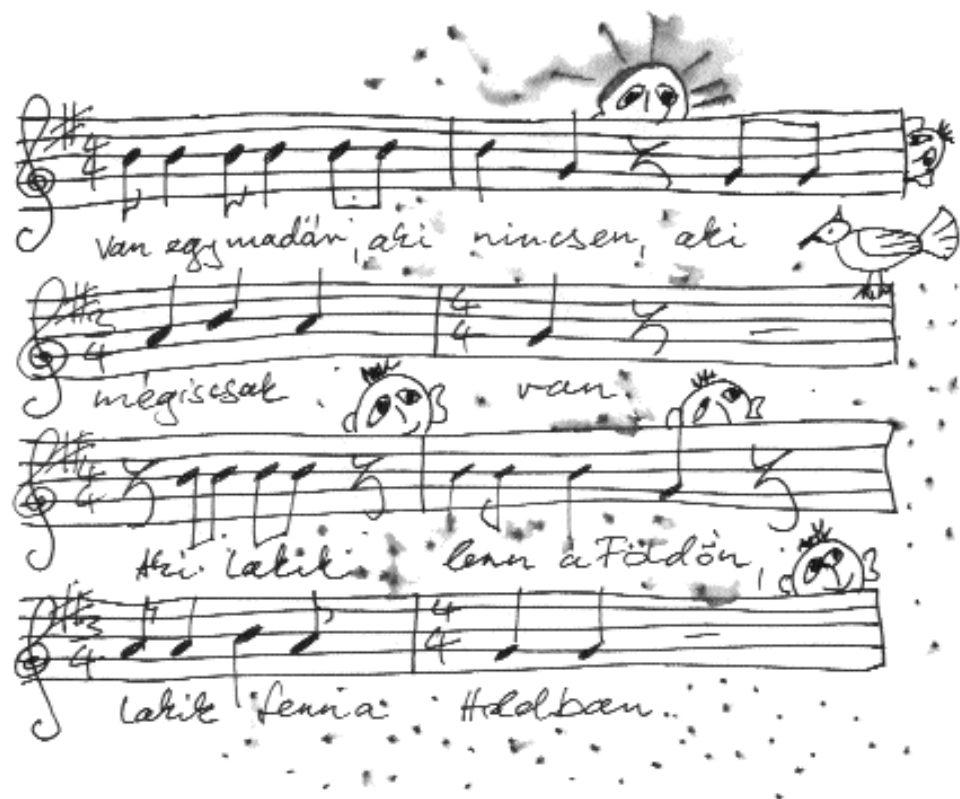 Van egy madár, aki nincsen, aki
mégiscsak van
Aki lakik lenn a Földön,
lakik fenn a Holdban..